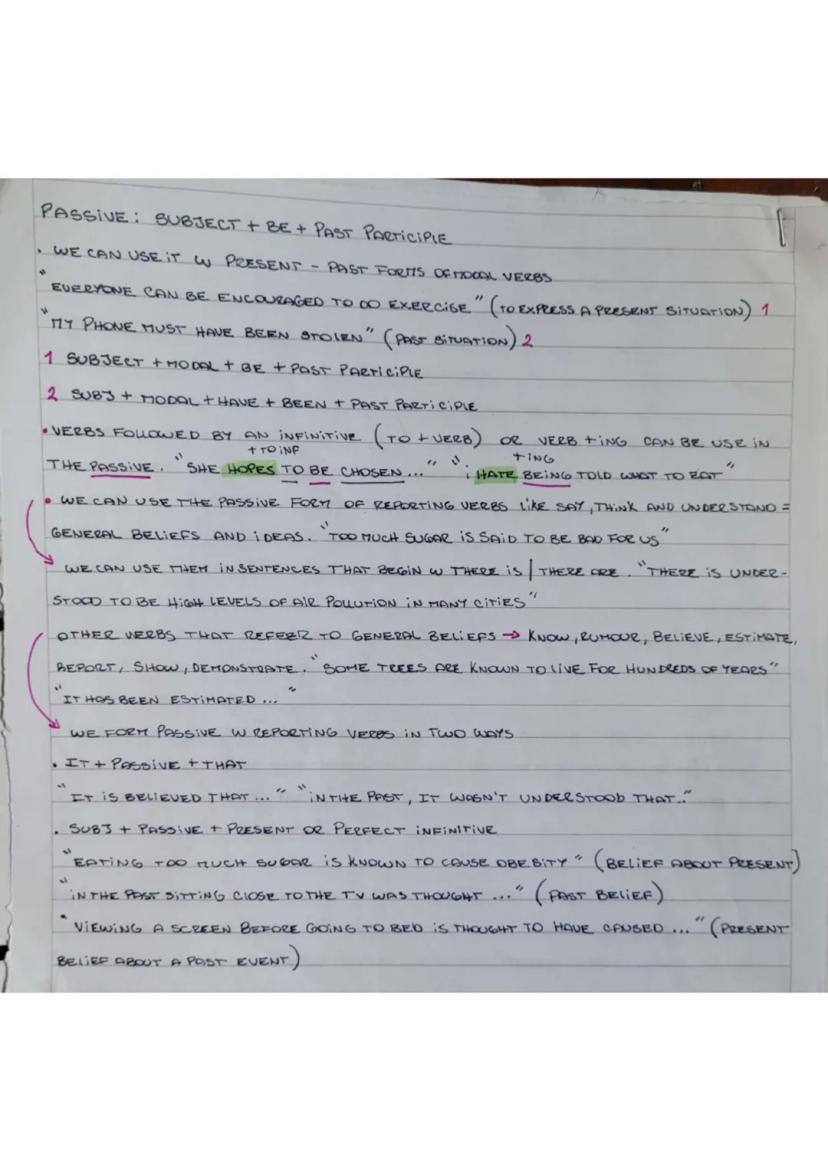 PASSIVE: SUBJECT + BE + PAST PARTICIPLE
• WE CAN USE IT W PRESENT - PAST FORMS OF MODAL VERBS
"EVERYONE CAN BE ENCOURAGED TO DO EXERCISE" (TO EXPRESS A PRESENT SITUATION) 1
"MY PHONE MUST HAVE BEEN STOLEN" (PAST SITUATION) 2
1 SUBJECT + MODAL + BE + PAST PARTICIPLE
2 SUBJ + MODAL + HAVE + BEEN + PAST PARTICIPLE
• VERBS FOLLOWED BY AN INFINITIVE (TO + VERB) OR VERB + ING CAN BE USE IN
+ TO INF + ING
THE PASSIVE. "SHE HOPES TO BE CHOSEN..." "i HATE BEING TOLD WHAT TO EAT"
• WE CAN USE THE PASSIVE FORM OF REPORTING VERBS LIKE SAY, THINK AND UNDERSTAND =
GENERAL BELIEFS AND IDEAS. "TOO MUCH SUGAR IS SAID TO BE BAD FOR US"
WE CAN USE THEM IN SENTENCES THAT BEGIN W THERE IS | THERE ARE. "THERE IS UNDER-
STOOD TO BE HIGH LEVELS OF AIR POLLUTION IN MANY CITIES"
OTHER VERBS THAT REFEER TO GENERAL BELIEFS → KNOW, RUMOUR, BELIEVE, ESTIMATE,
REPORT, SHOW, DEMONSTRATE. "SOME TREES ARE KNOWN TO LIVE FOR HUNDREDS OF YEARS"
"IT HAS BEEN ESTIMATED ..."
WE FORM PASSIVE W REPORTING VERBS IN TWO WAYS
• IT + PASSIVE + THAT
"IT IS BELIEVED THAT ..." "IN THE PAST, IT WASN'T UNDERSTOOD THAT.."
• SUBJ + PASSIVE + PRESENT OR PERFECT INFINITIVE
"EATING TOO MUCH SUGAR IS KNOWN TO CAUSE OBESITY" (BELIEF ABOUT PRESENT)
"IN THE PAST SITTING CLOSE TO THE TV WAS THOUGHT ..." (PAST BELIEF)
"VIEWING A SCREEN BEFORE GOING TO BED IS THOUGHT TO HAVE CAUSED ..." (PRESENT
BELIEF ABOUT A PAST EVENT)